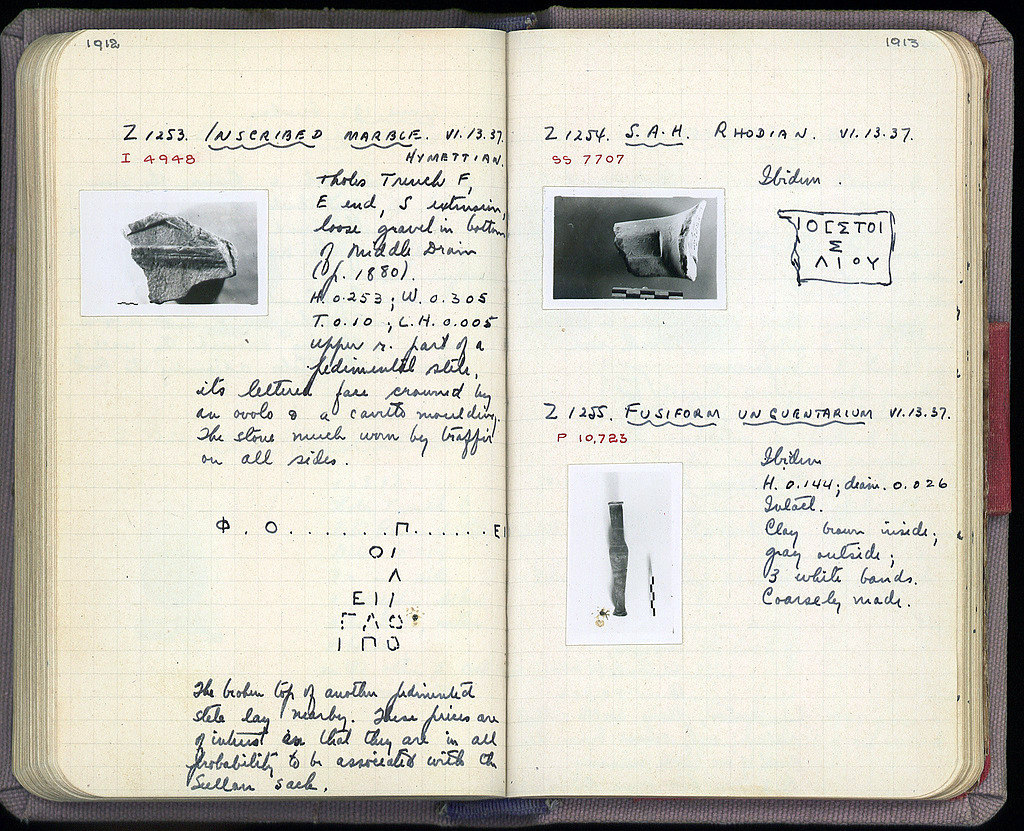 1912
Z 1253. INSCRIBED MARBLE. VI.13.37.
I 4948
HYMETTIAN.
Tholos Trench F,
E end, S extension,
loose gravel in bottom
of Middle Drain
(Cf. 1880).
H. 0.253; W. 0.305
T. 0.10; L.H. 0.005
upper r. part of a
pedimental stele,
its lettered face crowned by
an ovolo & a cavetto moulding.
The stone much worn by traffic
on all sides.
Φ . Ο . . . . . . . Π . . . . . . ΕΙ
ΟΙ
Λ
ΕΙΙ Ι
ΓΛΟ
ΙΠΟ
The broken top of another pedimented
stele lay nearby. These pieces are
of interest in that they are in all
probability to be associated with the
Sullan sack.
1913
Z 1254. S.A.H. RHODIAN. VI.13.37.
SS 7707
Ibidem.
ΙΟΓΣΤΟΙ
Σ
ΛΙΟΥ
Z 1255. FUSIFORM UNGUENTARIUM VI.13.37.
P 10,723
Ibidem
H. 0.144; diam. 0.026
Intact.
Clay brown inside;
gray outside;
3 white bands.
Coarsely made.